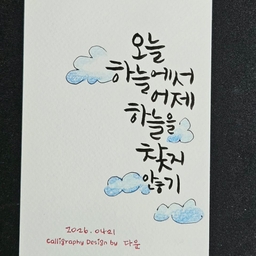 오늘
하늘에서
어제
하늘을
찾지
않기
2026.04.21
Calligraphy Design by 다운